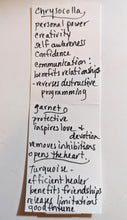 chrysocolla
personal power
creativity
self awareness
confidence
communication:
benefits relationships
- reverses destructive
programming
garnet
protective
inspires love &
devotion
removes inhibitions
opens the heart.
Turquoise -
efficient healer
benefits friendships
releases limitations
good fortune